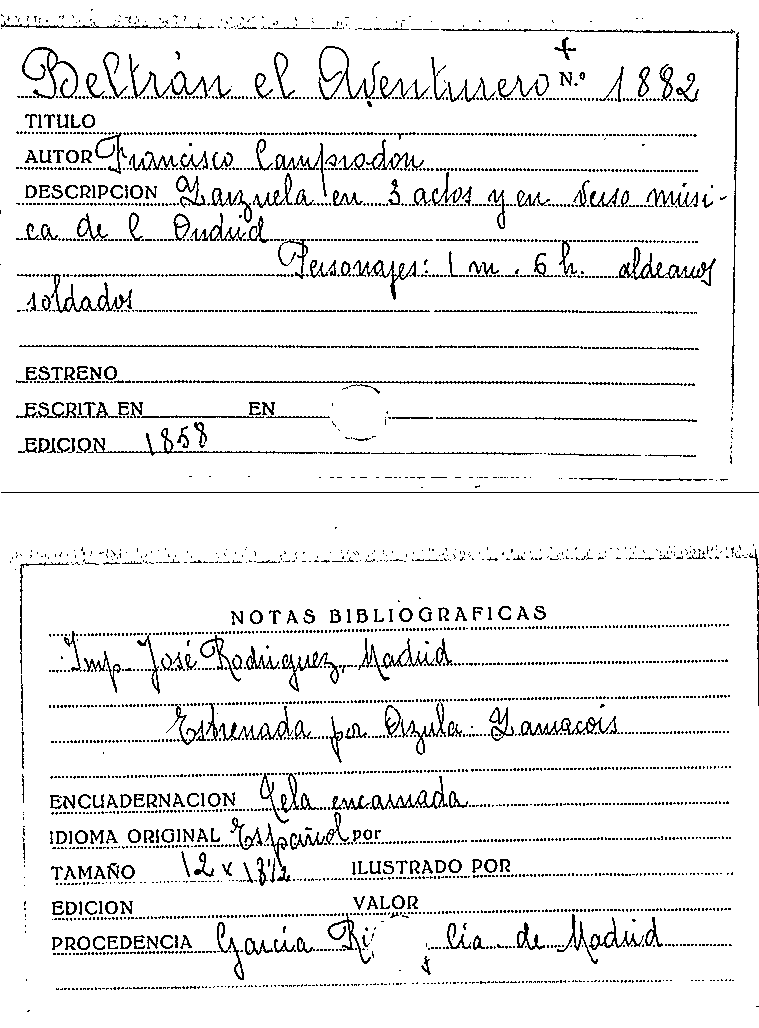 +
Beltrán el Aventurero N.º 1882
TITULO
AUTOR Francisco Camprodón
DESCRIPCION Zarzuela en 3 actos y en verso músi-
ca de C Oudrid
Personajes: 1 m. 6 h. aldeanos
soldados
ESTRENO
ESCRITA EN EN
EDICION 1858
NOTAS BIBLIOGRAFICAS
Imp. José Rodriguez, Madrid
Estrenada por Arzula. Zamacois
ENCUADERNACION Tela encarnada
IDIOMA ORIGINAL Español por
TAMAÑO 12 x 18½ ILUSTRADO POR
EDICION VALOR
PROCEDENCIA García Cía de Madrid